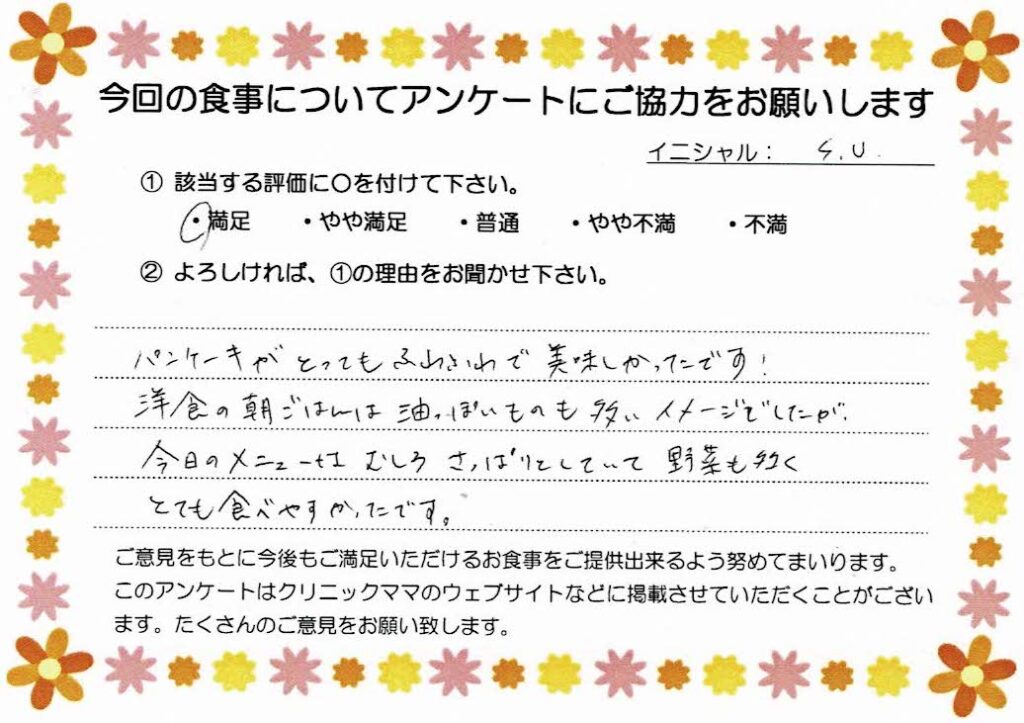 今回の食事についてアンケートにご協力をお願いします
イニシャル： S.U.
① 該当する評価に〇を付けて下さい。
・満足 ・やや満足 ・普通 ・やや不満 ・不満
② よろしければ、①の理由をお聞かせ下さい。
パンケーキが とっても ふわふわで 美味しかったです！
洋食の朝ごはんは 油っぽいものも多い イメージでしたが、
今日のメニューは むしろ さっぱりとしていて 野菜も多く
とても食べやすかったです。
ご意見をもとに今後もご満足いただけるお食事をご提供出来るよう努めてまいります。
このアンケートはクリニックママのウェブサイトなどに掲載させていただくことがござい
ます。たくさんのご意見をお願い致します。